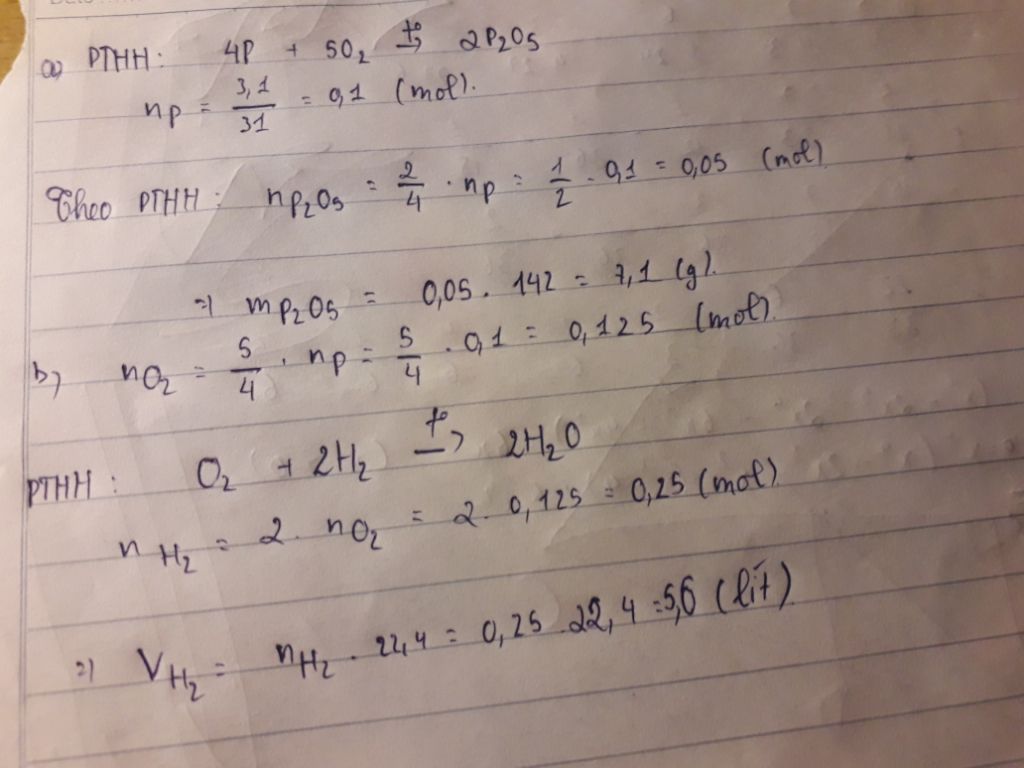 a) PTHH: 4P + 5O₂ t°→ 2P₂O₅
nP = 3,1/31 = 0,1 (mol).
Theo PTHH: nP₂O₅ = 2/4 . nP = 1/2 . 0,1 = 0,05 (mol)
=) mP₂O₅ = 0,05 . 142 = 7,1 (g).
b) nO₂ = 5/4 . nP = 5/4 . 0,1 = 0,125 (mol).
PTHH: O₂ + 2H₂ t°→ 2H₂O
nH₂ = 2. nO₂ = 2. 0,125 = 0,25 (mol)
=) VH₂ = nH₂ . 22,4 = 0,25 . 22,4 = 5,6 (lít)